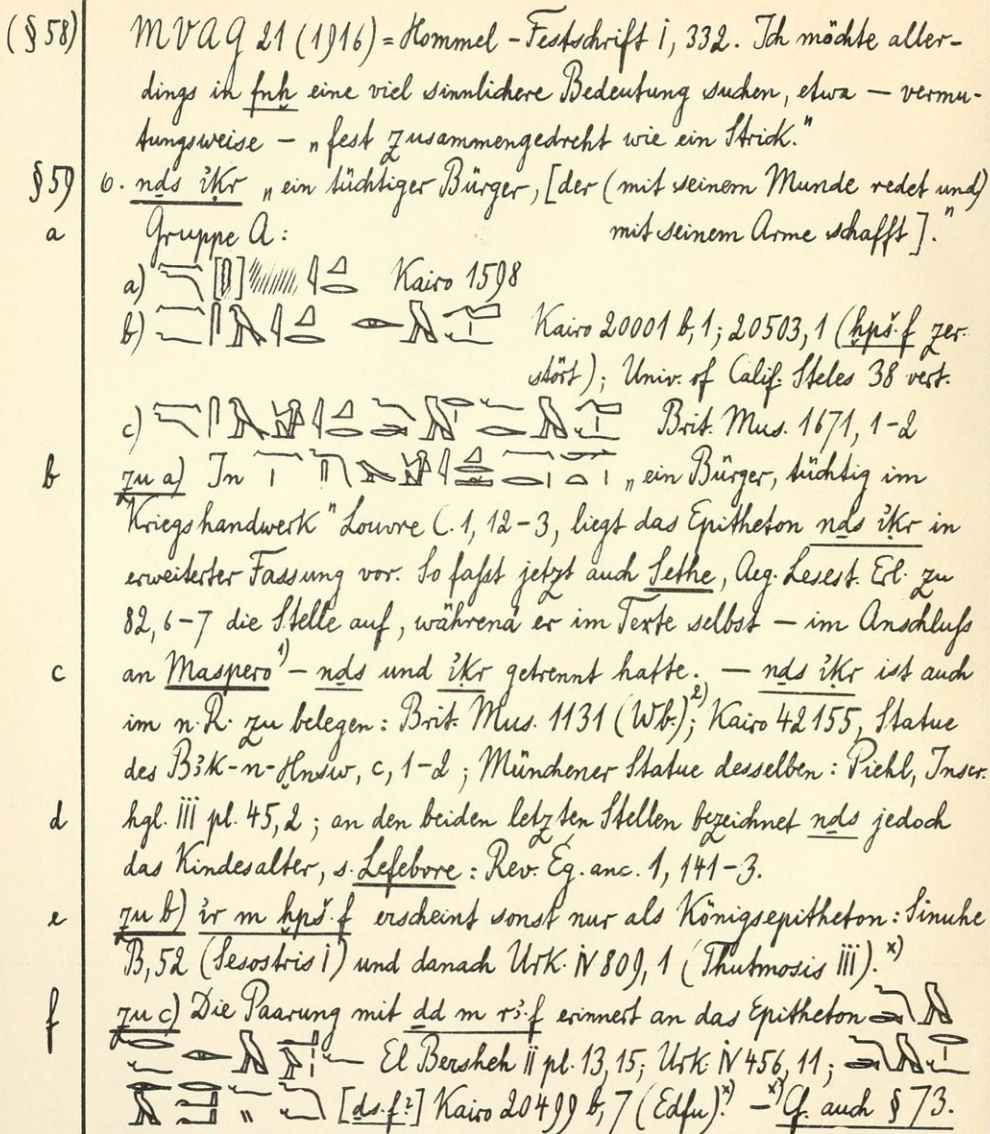 (§58) MVAG 21 (1916) = Hommel-Festschrift I, 332. Ich möchte aller-
dings in fnḫ eine viel sinnlichere Bedeutung suchen, etwa — vermu-
tungsweise — „fest zusammengedreht wie ein Strick."
§59 6. nḏs iḳr „ein tüchtiger Bürger, [der (mit seinem Munde redet und)
a Gruppe A: mit seinem Arme schafft]."
a) Kairo 1598
b) Kairo 20001 b, 1; 20503, 1 (ḫpš.f zer-
stört); Univ. of Calif. Steles 38 vert.
c) Brit. Mus. 1671, 1-2
b zu a) In „ein Bürger, tüchtig im
Kriegshandwerk" Louvre C. 1, 12-3, liegt das Epitheton nḏs iḳr in
erweiterter Fassung vor. So faßt jetzt auch Sethe, Aeg. Lesest. Erl. zu
82, 6-7 die Stelle auf, während er im Texte selbst — im Anschluß
c an Maspero¹⁾ — nḏs und iḳr getrennt hatte. — nḏs iḳr ist auch
im n.R. zu belegen: Brit. Mus. 1131 (Wb.)²⁾; Kairo 42155, Statue
des Bꜣk-n-Ḫnsw, c, 1-2; Münchener Statue desselben: Piehl, Inscr.
d hgl. III pl. 45, 2; an den beiden letzten Stellen bezeichnet nḏs jedoch
das Kindesalter, s. Lefebvre: Rev. Eg. anc. 1, 141-3.
e zu b) ir m ḫpš.f erscheint sonst nur als Königsepitheton: Sinuhe
B, 52 (Sesostris I) und danach Urk. IV 809, 1 (Thutmosis III).ˣ⁾
f zu c) Die Paarung mit ḏd m rꜣ.f erinnert an das Epitheton
El Bersheh II pl. 13, 15; Urk. IV 456, 11;
[ḏs.f?] Kairo 20499 b, 7 (Edfu).ˣ⁾ — ˣ⁾Cf. auch § 73.